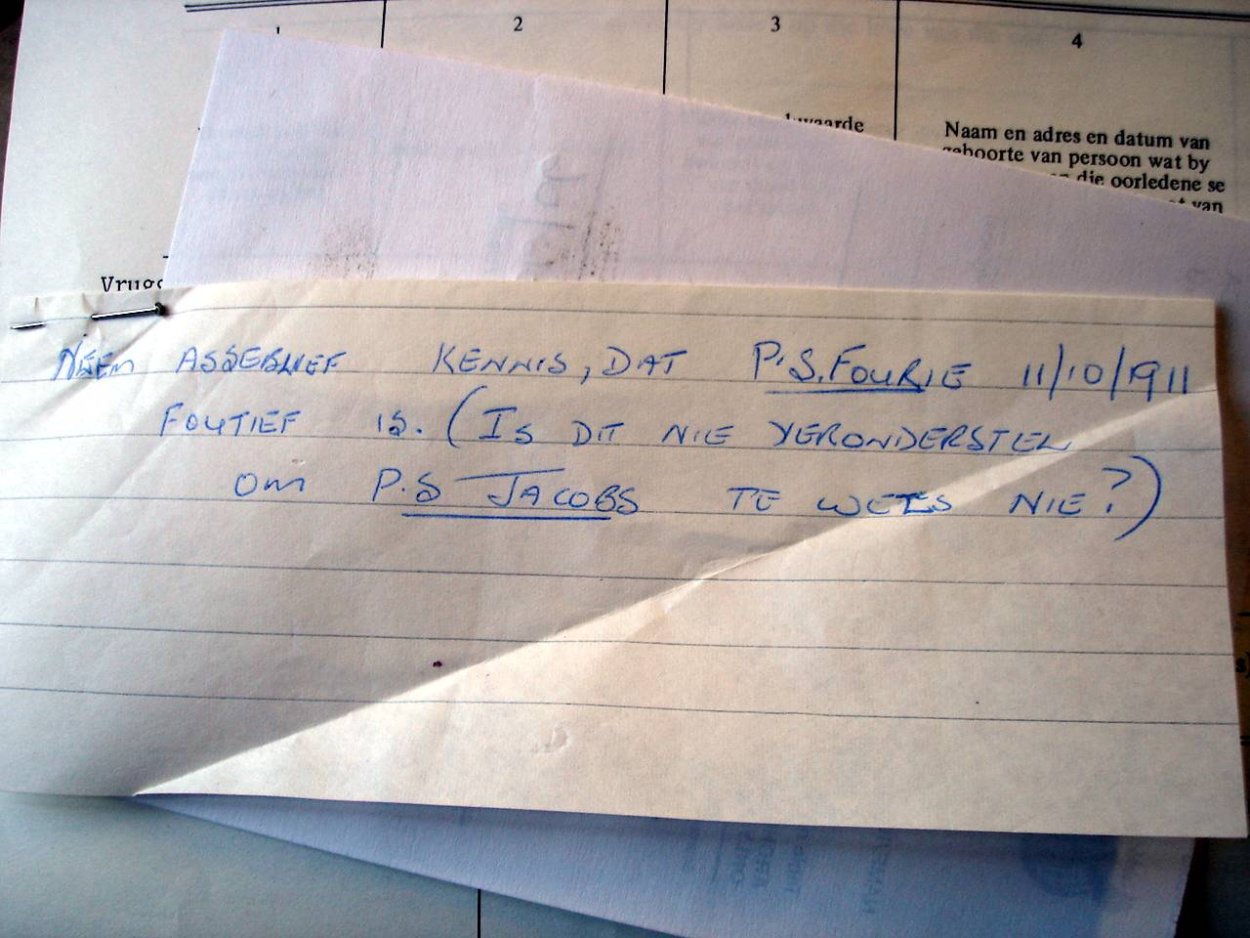 1 2 3 4
Naam en adres en datum van
geboorte van persoon wat by
die oorledene se
van
NEEM ASSEBLIEF KENNIS, DAT P.S. FOURIE 11/10/1911
FOUTIEF IS. (IS DIT NIE VERONDERSTEL
OM P.S JACOBS TE WEES NIE?)